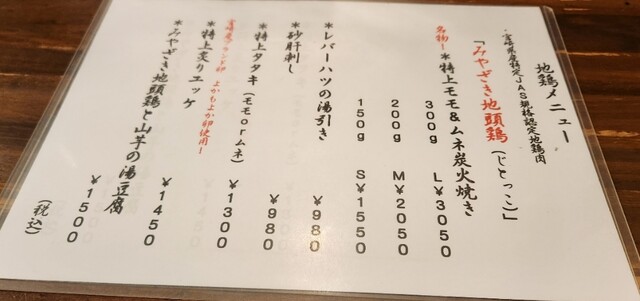 地鶏メニュー
宮崎県産特定JAS規格認定地鶏肉
「みやざき地頭鶏(じとっこ)」
名物!*特上モモ&ムネ炭火焼き
300g L¥3050
200g M¥2050
150g S¥1550
*レバーハツの湯引き ¥980
*砂肝刺し ¥980
*特上タタキ(モモorムネ) ¥1300
宮崎産ブランド卵 よかもよか卵使用!
*特上炙りユッケ ¥1450
*みやざき地頭鶏と山芋の湯豆腐 ¥1500
(税込)